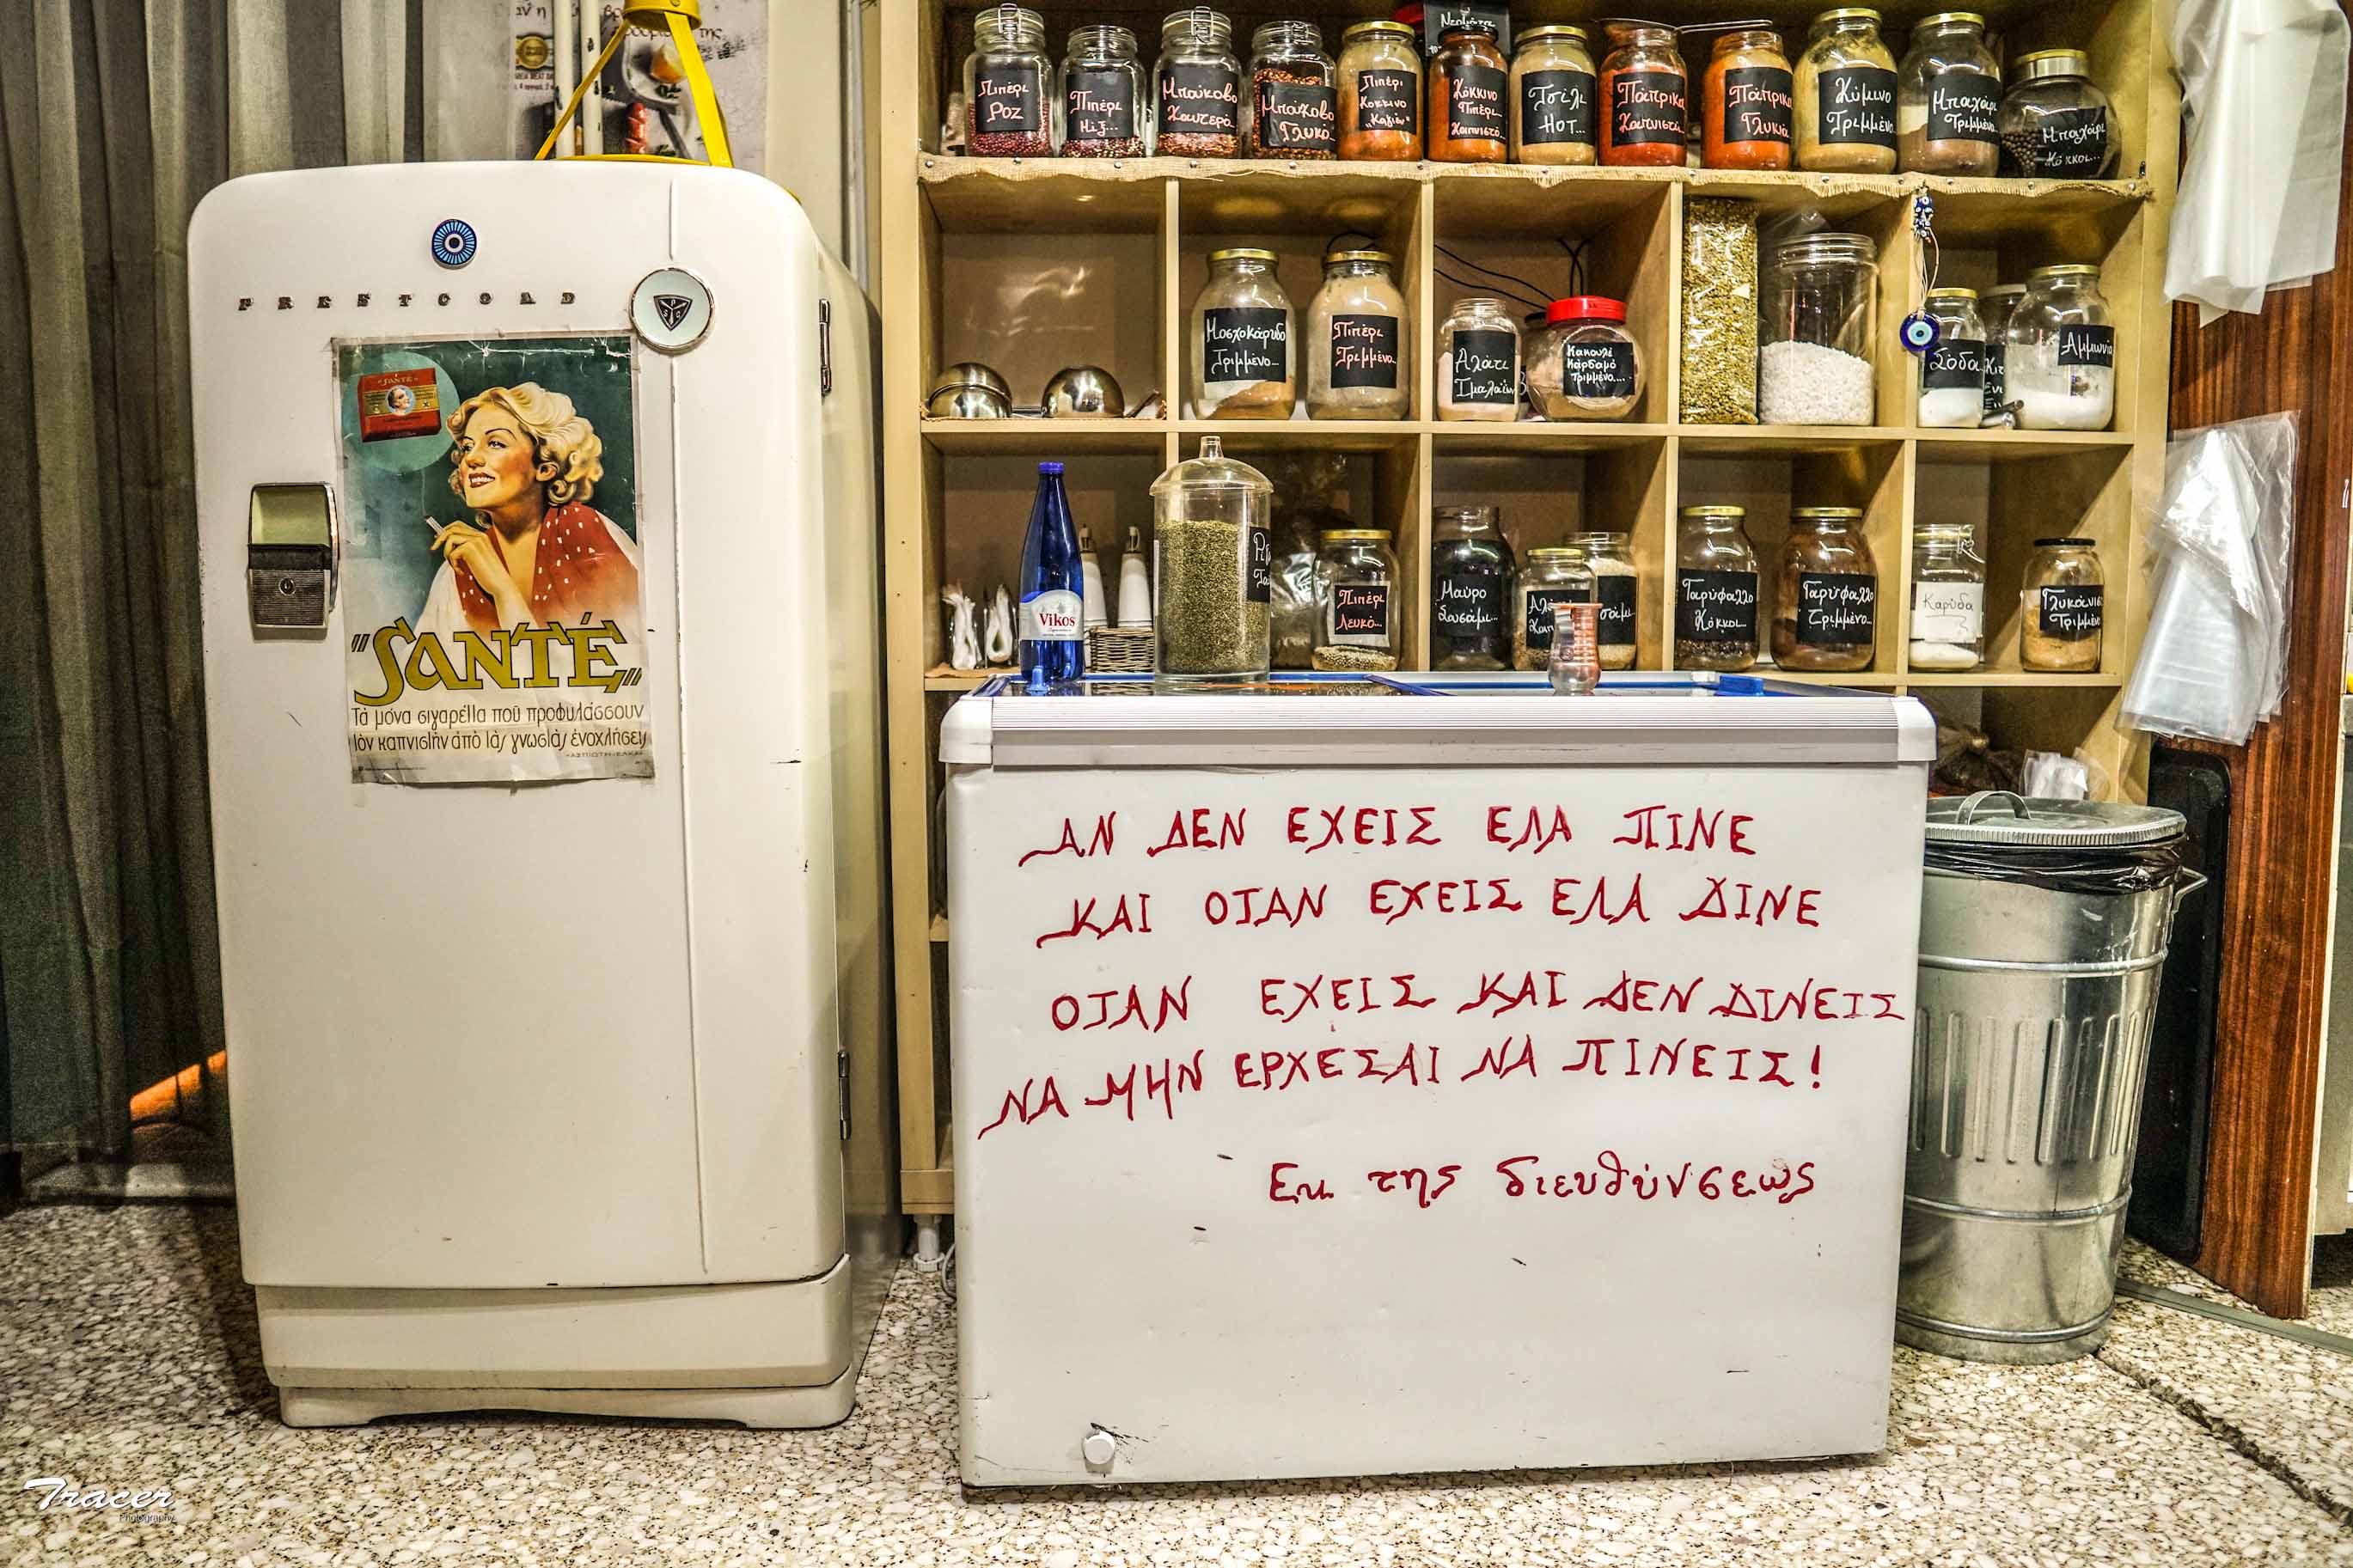 Πιπέρι
Ροζ
Πιπέρι
Μιξ...
Μπούκοβο
Καυτερό...
Μπούκοβο
Γλυκό
Πιπέρι
Κόκκινο
"Καγιέν"
Κόκκινο
Πιπέρι
Καπνιστό...
Τσίλι
HOT...
Πάπρικα
Καπνιστή...
Πάπρικα
Γλυκιά
Κύμινο
Τριμμένο...
Μπαχάρι
Τριμμένο...
Μπαχάρι
Κόκκοι...
Μοσχοκάρυδο
Τριμμένο...
Πιπέρι
Τριμμένο...
Αλάτι
Ιμαλαΐων
Κακουλέ
Κάρδαμο
Τριμμένο....
Σόδα
Αμμωνία
Vikos
Πιπέρι
Λευκό...
Μαύρο
Σουσάμι...
Γαρύφαλλο
Κόκκοι...
Γαρύφαλλο
Τριμμένο...
Καρύδα
Γλυκάνισο
Τριμμένο...
PRESTCOLD
PSC
"SANTÉ"
"SANTÉ"
Τὰ μόνα σιγαρέττα ποῦ προφυλάσσουν
τὸν καπνιστὴν ἀπὸ τὰς γνωστὰς ἐνοχλήσεις
ΑΝ ΔΕΝ ΕΧΕΙΣ ΕΛΑ ΠΙΝΕ
ΚΑΙ ΟΤΑΝ ΕΧΕΙΣ ΕΛΑ ΔΙΝΕ
ΟΤΑΝ ΕΧΕΙΣ ΚΑΙ ΔΕΝ ΔΙΝΕΙΣ
ΝΑ ΜΗΝ ΕΡΧΕΣΑΙ ΝΑ ΠΙΝΕΙΣ!
Εκ της διευθύνσεως
Tracer
Photography